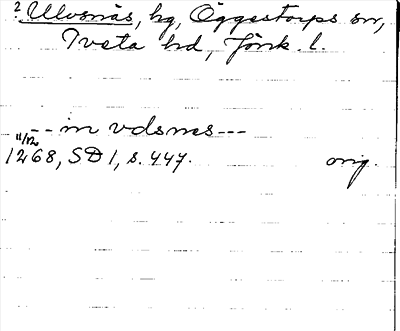 2 Ulvsnäs, hg, Öggestorps sn,
Tveta hd, Jönk. l.
-- in vdsnes ---
11/12
1268, SD 1, s. 447. orig.